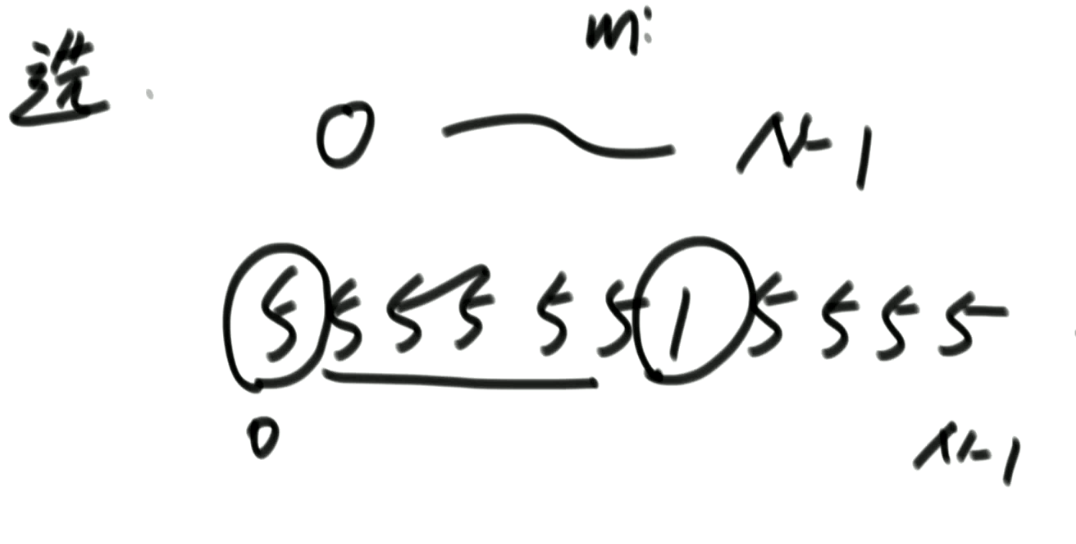 m:
选
0 ~ N-1
5 5 5 5 5 5 1 5 5 5 5
0 N-1